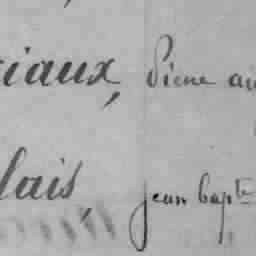 iaux, Pierre ai
lais, jean bapte